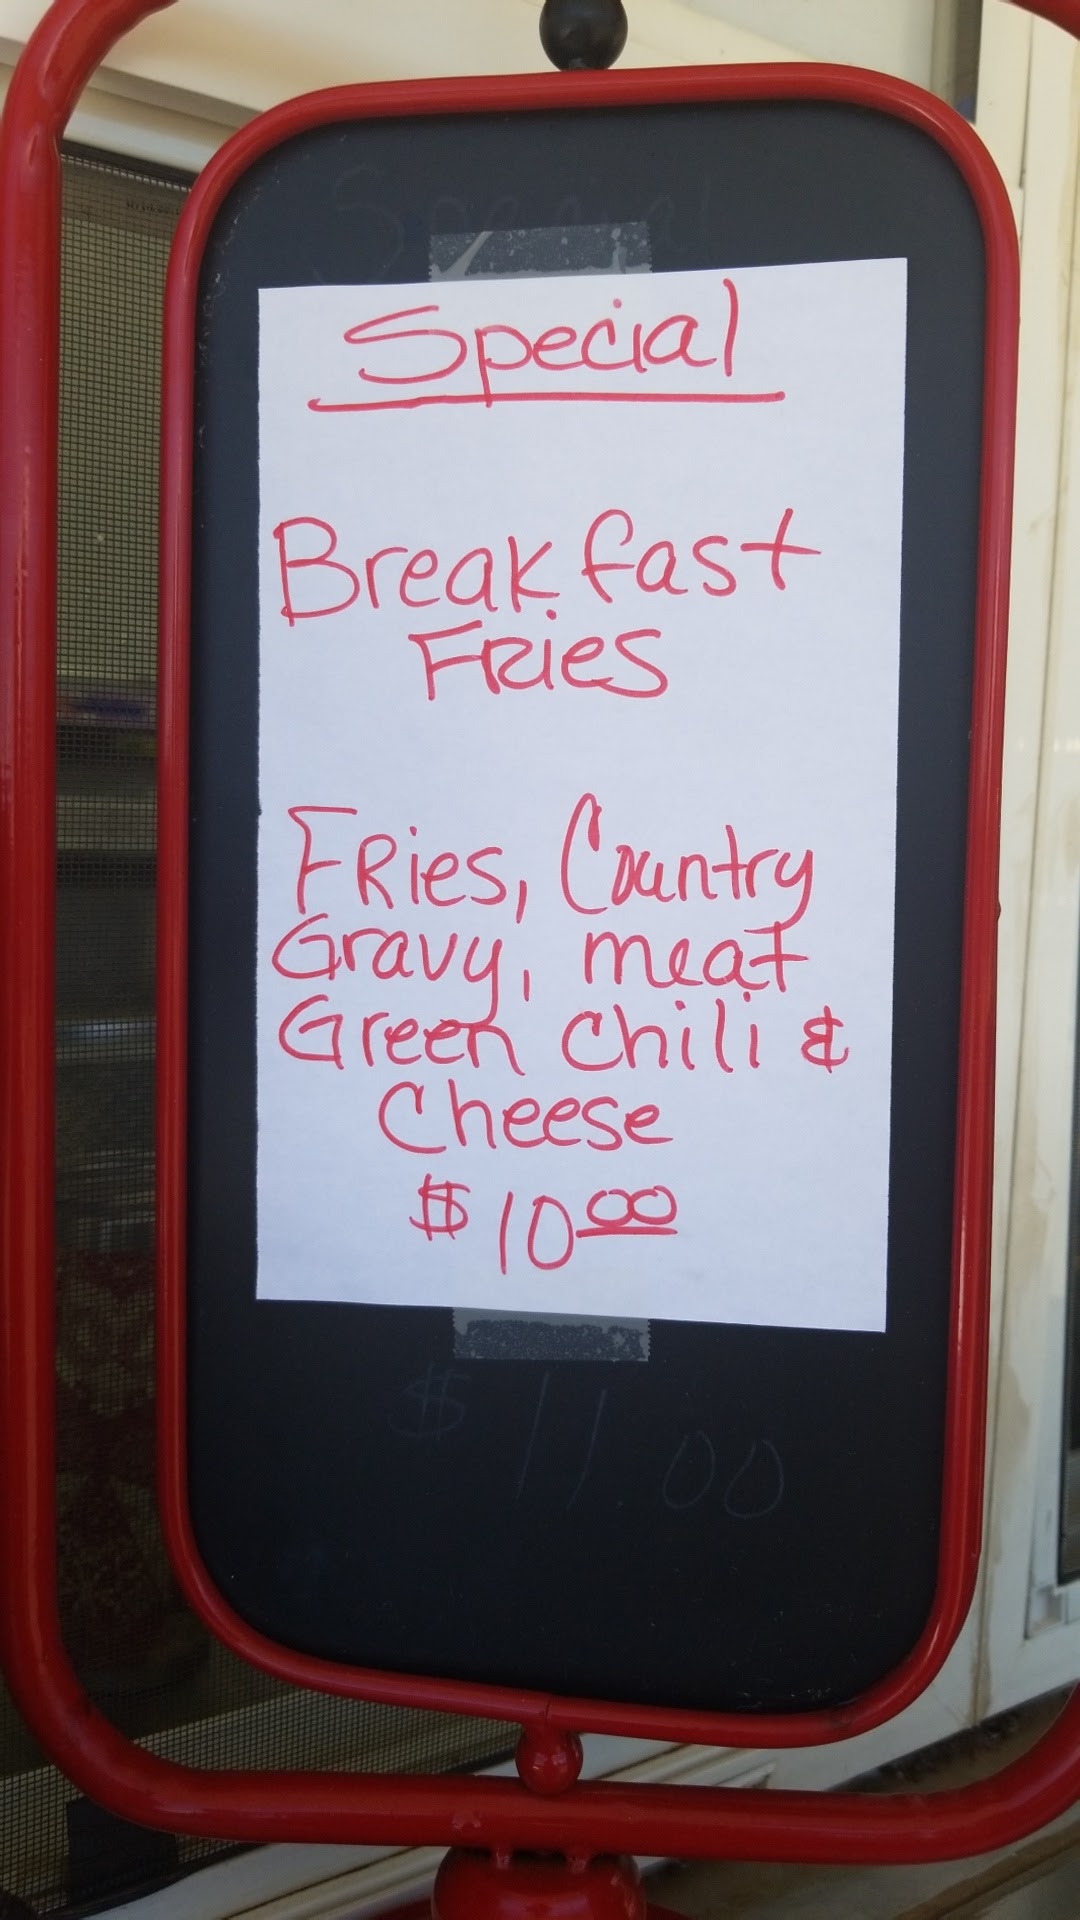 Special
Special
Breakfast
FRies
FRies, Country
Gravy, meat
Green Chili &
Cheese
$10.00
$11.00